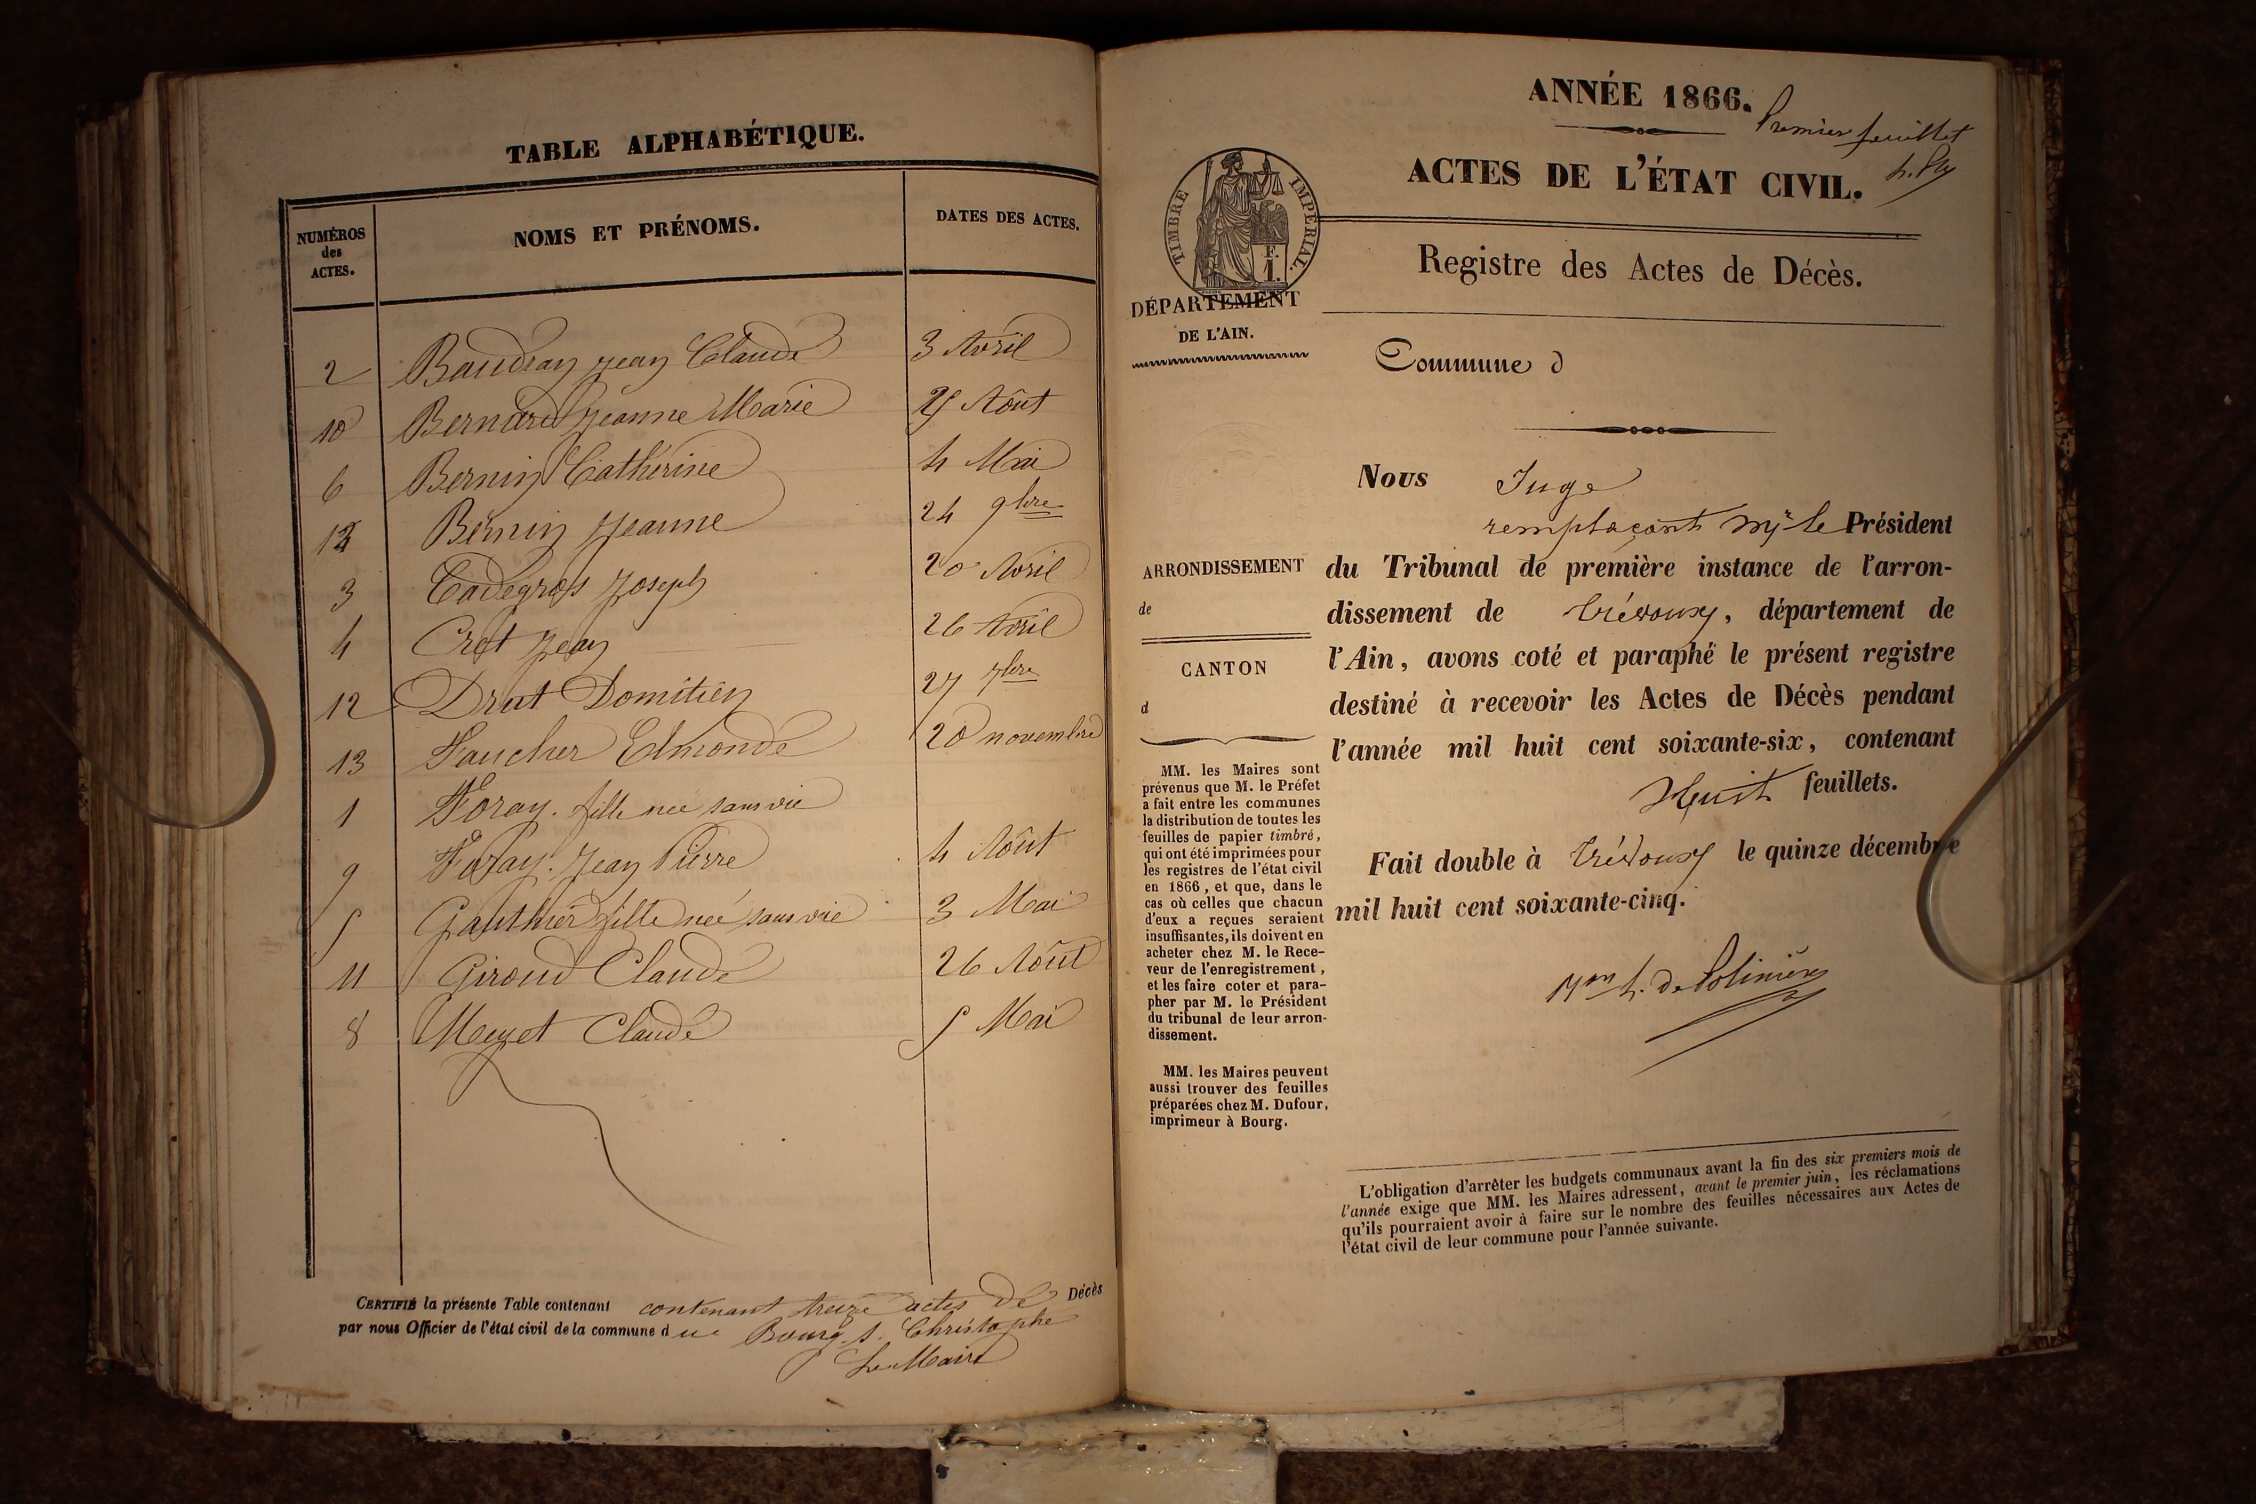 TABLE ALPHABÉTIQUE.
NUMÉROS
des
ACTES.
NOMS ET PRÉNOMS.
DATES DES ACTES.
2 Baudran Jean Claude 3 Avril
10 Bernard Jeanne Marie Août
6 Bernin Catherine 4 Mai
Bernin Jeanne 24 9bre
3 Cadegros Joseph 20 Avril
4 Crot Jean 26 Avril
12 Drut Domitien 27 7bre
13 Faucher Edmonde 20 novembre
1 Foray. fille née sans vie
9 Foray. Jean Pierre 4 Août
5 Gauthier fille née sans vie 3 Mai
11 Giroud Claude 26 Août
8 Meyet Claude 5 Mai
CERTIFIÉ la présente Table contenant contenant treize actes de Décès
par nous Officier de l'état civil de la commune de Bourg St. Christophe
Le Maire
ANNÉE 1866.
Premier feuillet
ACTES DE L'ÉTAT CIVIL.
TIMBRE IMPÉRIAL.
Registre des Actes de Décès.
DÉPARTEMENT
DE L'AIN.
Commune d
Nous Juge
remplaçant Mr le Président
du Tribunal de première instance de l'arron-
dissement de Trévoux, département de
l'Ain, avons coté et paraphé le présent registre
destiné à recevoir les Actes de Décès pendant
l'année mil huit cent soixante-six, contenant
Huit feuillets.
Fait double à Trévoux le quinze décembre
mil huit cent soixante-cinq.
h. de Polinière
ARRONDISSEMENT
de
CANTON
d
MM. les Maires sont
prévenus que M. le Préfet
a fait entre les communes
la distribution de toutes les
feuilles de papier timbré,
qui ont été imprimées pour
les registres de l'état civil
en 1866, et que, dans le
cas où celles que chacun
d'eux a reçues seraient
insuffisantes, ils doivent en
acheter chez M. le Rece-
veur de l'enregistrement,
et les faire coter et para-
pher par M. le Président
du tribunal de leur arron-
dissement.
MM. les Maires peuvent
aussi trouver des feuilles
préparées chez M. Dufour,
imprimeur à Bourg.
L'obligation d'arrêter les budgets communaux avant la fin des six premiers mois de
l'année exige que MM. les Maires adressent, avant le premier juin, les réclamations
qu'ils pourraient avoir à faire sur le nombre des feuilles nécessaires aux Actes de
l'état civil de leur commune pour l'année suivante.